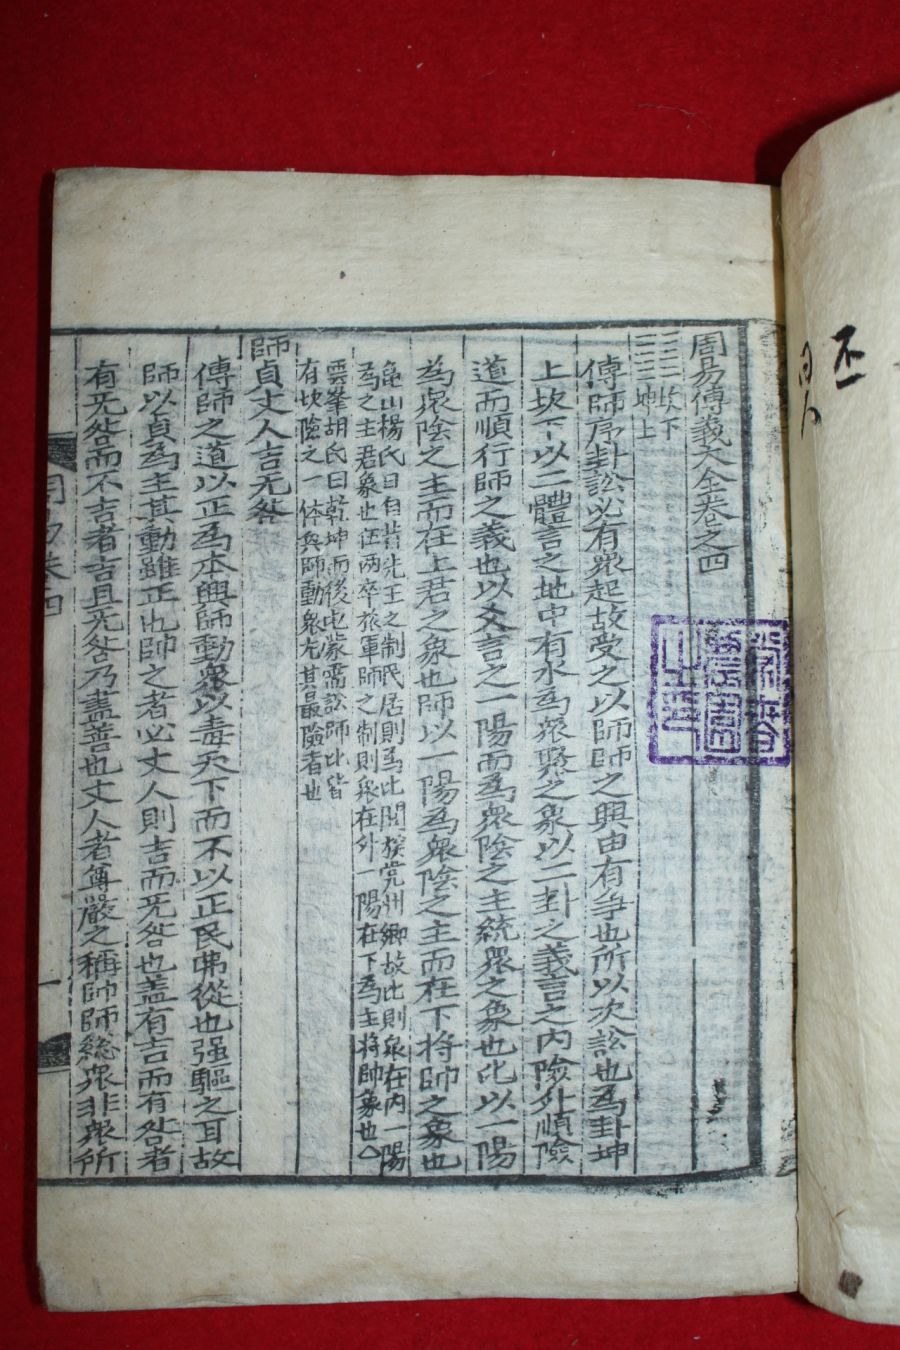 周易傳義大全卷之四
坎下
坤上
傳師序卦訟必有衆起故受之以師師之興由有爭也所以次訟也爲卦坤
上坎下以二體言之地中有水爲衆聚之象以二卦之義言之内險外順險
道而順行師之義也以爻言之一陽而爲衆陰之主統衆之象也比以一陽
爲衆陰之主而在上君之象也師以一陽爲衆陰之主而在下將帥之象也
龜山楊氏曰自昔先王之制民居則爲比閭族党州鄉故比則衆在内一陽
爲之主君象也伍两卒旅軍師之制則衆在外一陽在下爲主將帥象也
雲峯胡氏曰乾坤而後屯蒙需訟師比皆
有坎險之一体與師動衆尤其最險者也
師貞丈人吉无咎
傳師之道以正爲本興師動衆以毒天下而不以正民弗從也强驅之耳故
師以貞爲主其動雖正也帥之者必丈人則吉而无咎也盖有吉而有咎者
有无咎而不吉者吉且无咎乃盡善也丈人者尊嚴之稱帥師緫衆非衆所
周易卷四
一